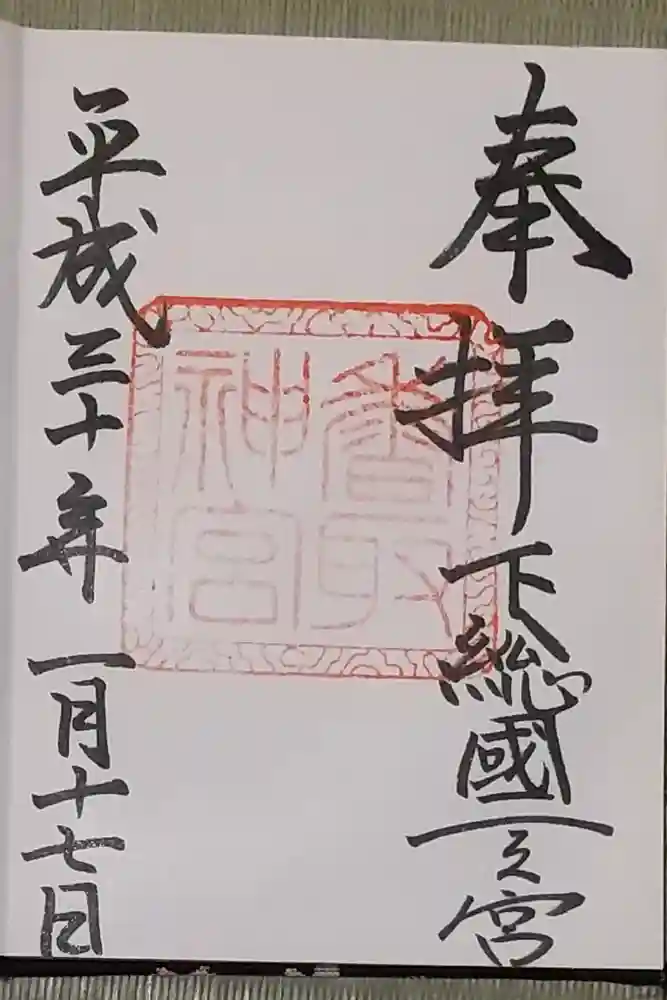 奉拝 下総國一之宮
香取
神宮
平成三十年 一月十七日